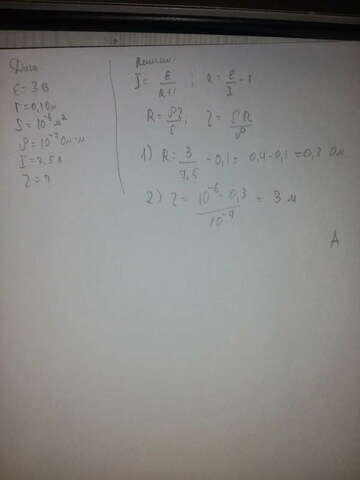 Дано
ε = 3 В
r = 0,1 Ом
S = 10⁻⁶ м²
ρ = 10⁻⁷ Ом·м
I = 7,5 А
l = ?
Решение
I = ε/(R+r) ; R = ε/I - r
R = ρl/S ; l = SR/ρ
1) R = 3/7,5 - 0,1 = 0,4 - 0,1 = 0,3 Ом
2) l = 10⁻⁶ · 0,3/10⁻⁷ = 3 м
А